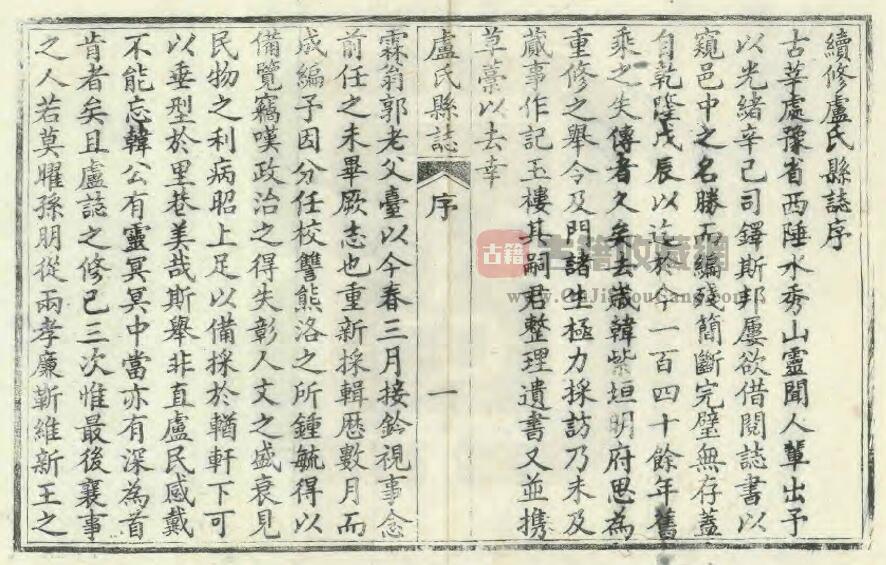 續修盧氏縣誌序
古莘處豫省西陲水秀山靈聞人輩出予
以光緒辛巳司鐸斯邦屢欲借閱誌書以
窺邑中之名勝而編殘簡斷完璧無存蓋
自乾隆戊辰以迄於今一百四十餘年舊
乘之失傳者久矣去歲韓紫垣明府思為
重修之舉令及門諸生極力採訪乃未及
蕆事作記玉樓其嗣君整理遺書又並携
草藁以去幸
盧氏縣誌 序 一
霖翁郭老父臺以今春三月接鈴視事念
前任之未畢厥志也重新採輯歷數月而
成編予因分任校讐熊洛之所鍾毓得以
備覽竊嘆政治之得失彰人文之盛衰見
民物之利病昭上足以備採於輶軒下可
以垂型於里巷美哉斯舉非直盧民感戴
不能忘韓公有靈冥冥中當亦有深為首
肯者矣且盧誌之修已三次惟最後襄事
之人若莫曜孫朋從兩孝廉靳維新王之
古籍
古籍收藏網